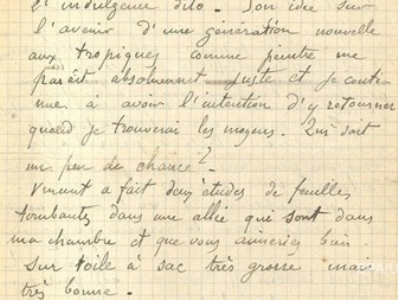 l'indulgence dito. Son idée sur
l'avenir d'une génération nouvelle
aux tropiques comme peintre me
paraît absolument juste et je conti-
nue à avoir l'intention d'y retourner
quand je trouverai les moyens. Qui sait
un peu de chance?
Vincent a fait deux études de feuilles
tombantes dans une allée qui sont dans
ma chambre et que vous aimeriez bien.
Sur toile à sac très grosse mais
très bonne.